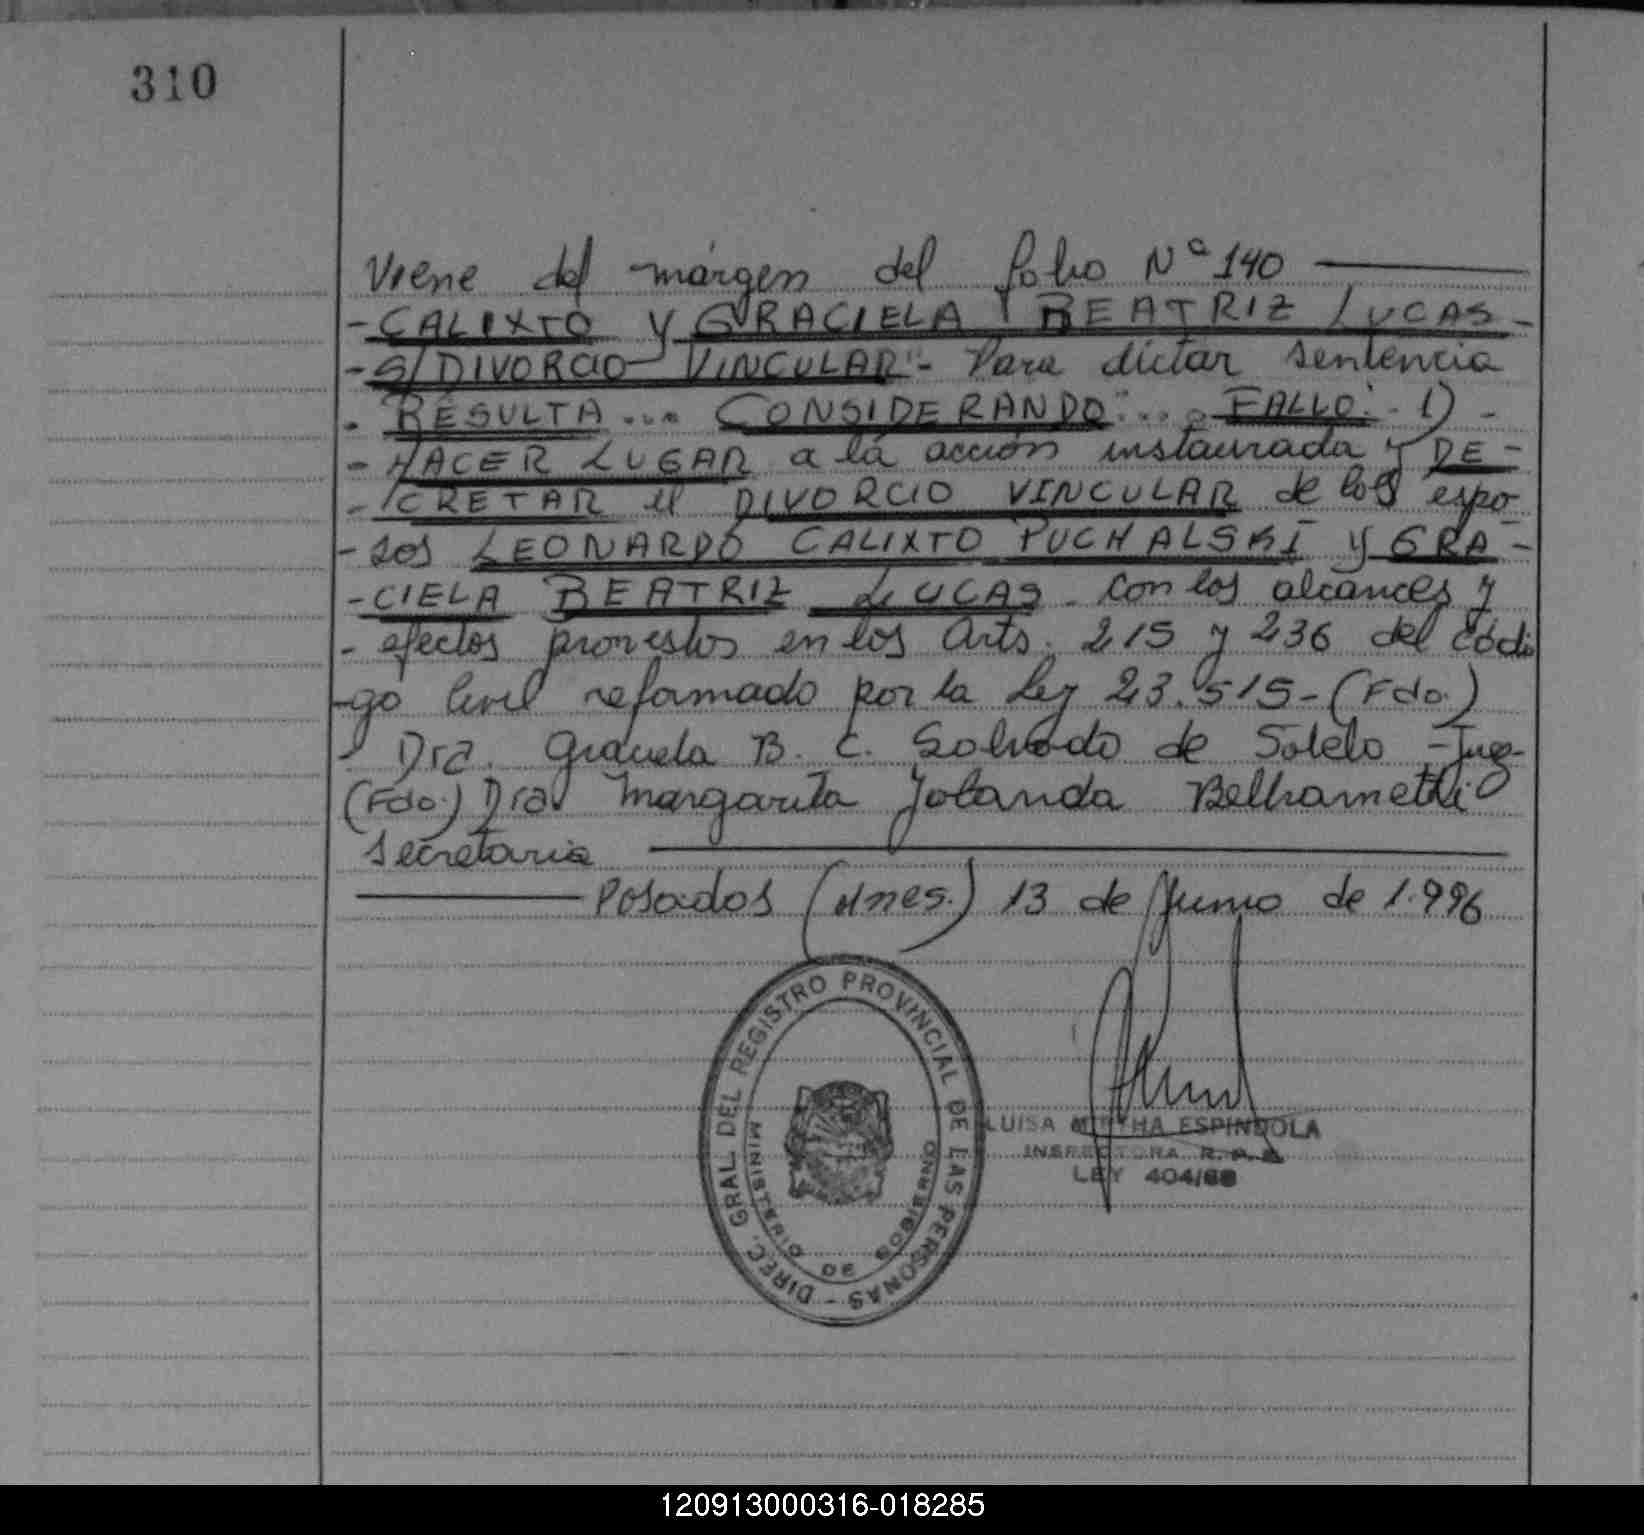 310
Viene del márgen del folio Nº 140
-CALIXTO y GRACIELA BEATRIZ LUCAS-
-S/DIVORCIO VINCULAR"- Para dictar sentencia
- RESULTA... CONSIDERANDO:... FALLO: 1) -
- HACER LUGAR a la acción instaurada y DE-
- CRETAR el DIVORCIO VINCULAR de los espo
- sos LEONARDO CALIXTO PUCHALSKI y GRA-
-CIELA BEATRIZ LUCAS - con los alcances y
- efectos previstos en los Arts. 215 y 236 del Códi
-go Civil reformado por la Ley 23.515-(Fdo.)
- Dra. Graciela B. C. Salvado de Sotelo -Juez-
(Fdo.) Dra. Margarita Yolanda
Secretaria
Posadas (Mnes.) 13 de Junio de 1.996
DIREC. GRAL. DEL REGISTRO PROVINCIAL DE LAS PERSONAS -
MINISTERIO DE GOBIERNO
LUISA MIRTHA ESPINDOLA
INSPECTORA R. P.
LEY 404/
120913000316-018285